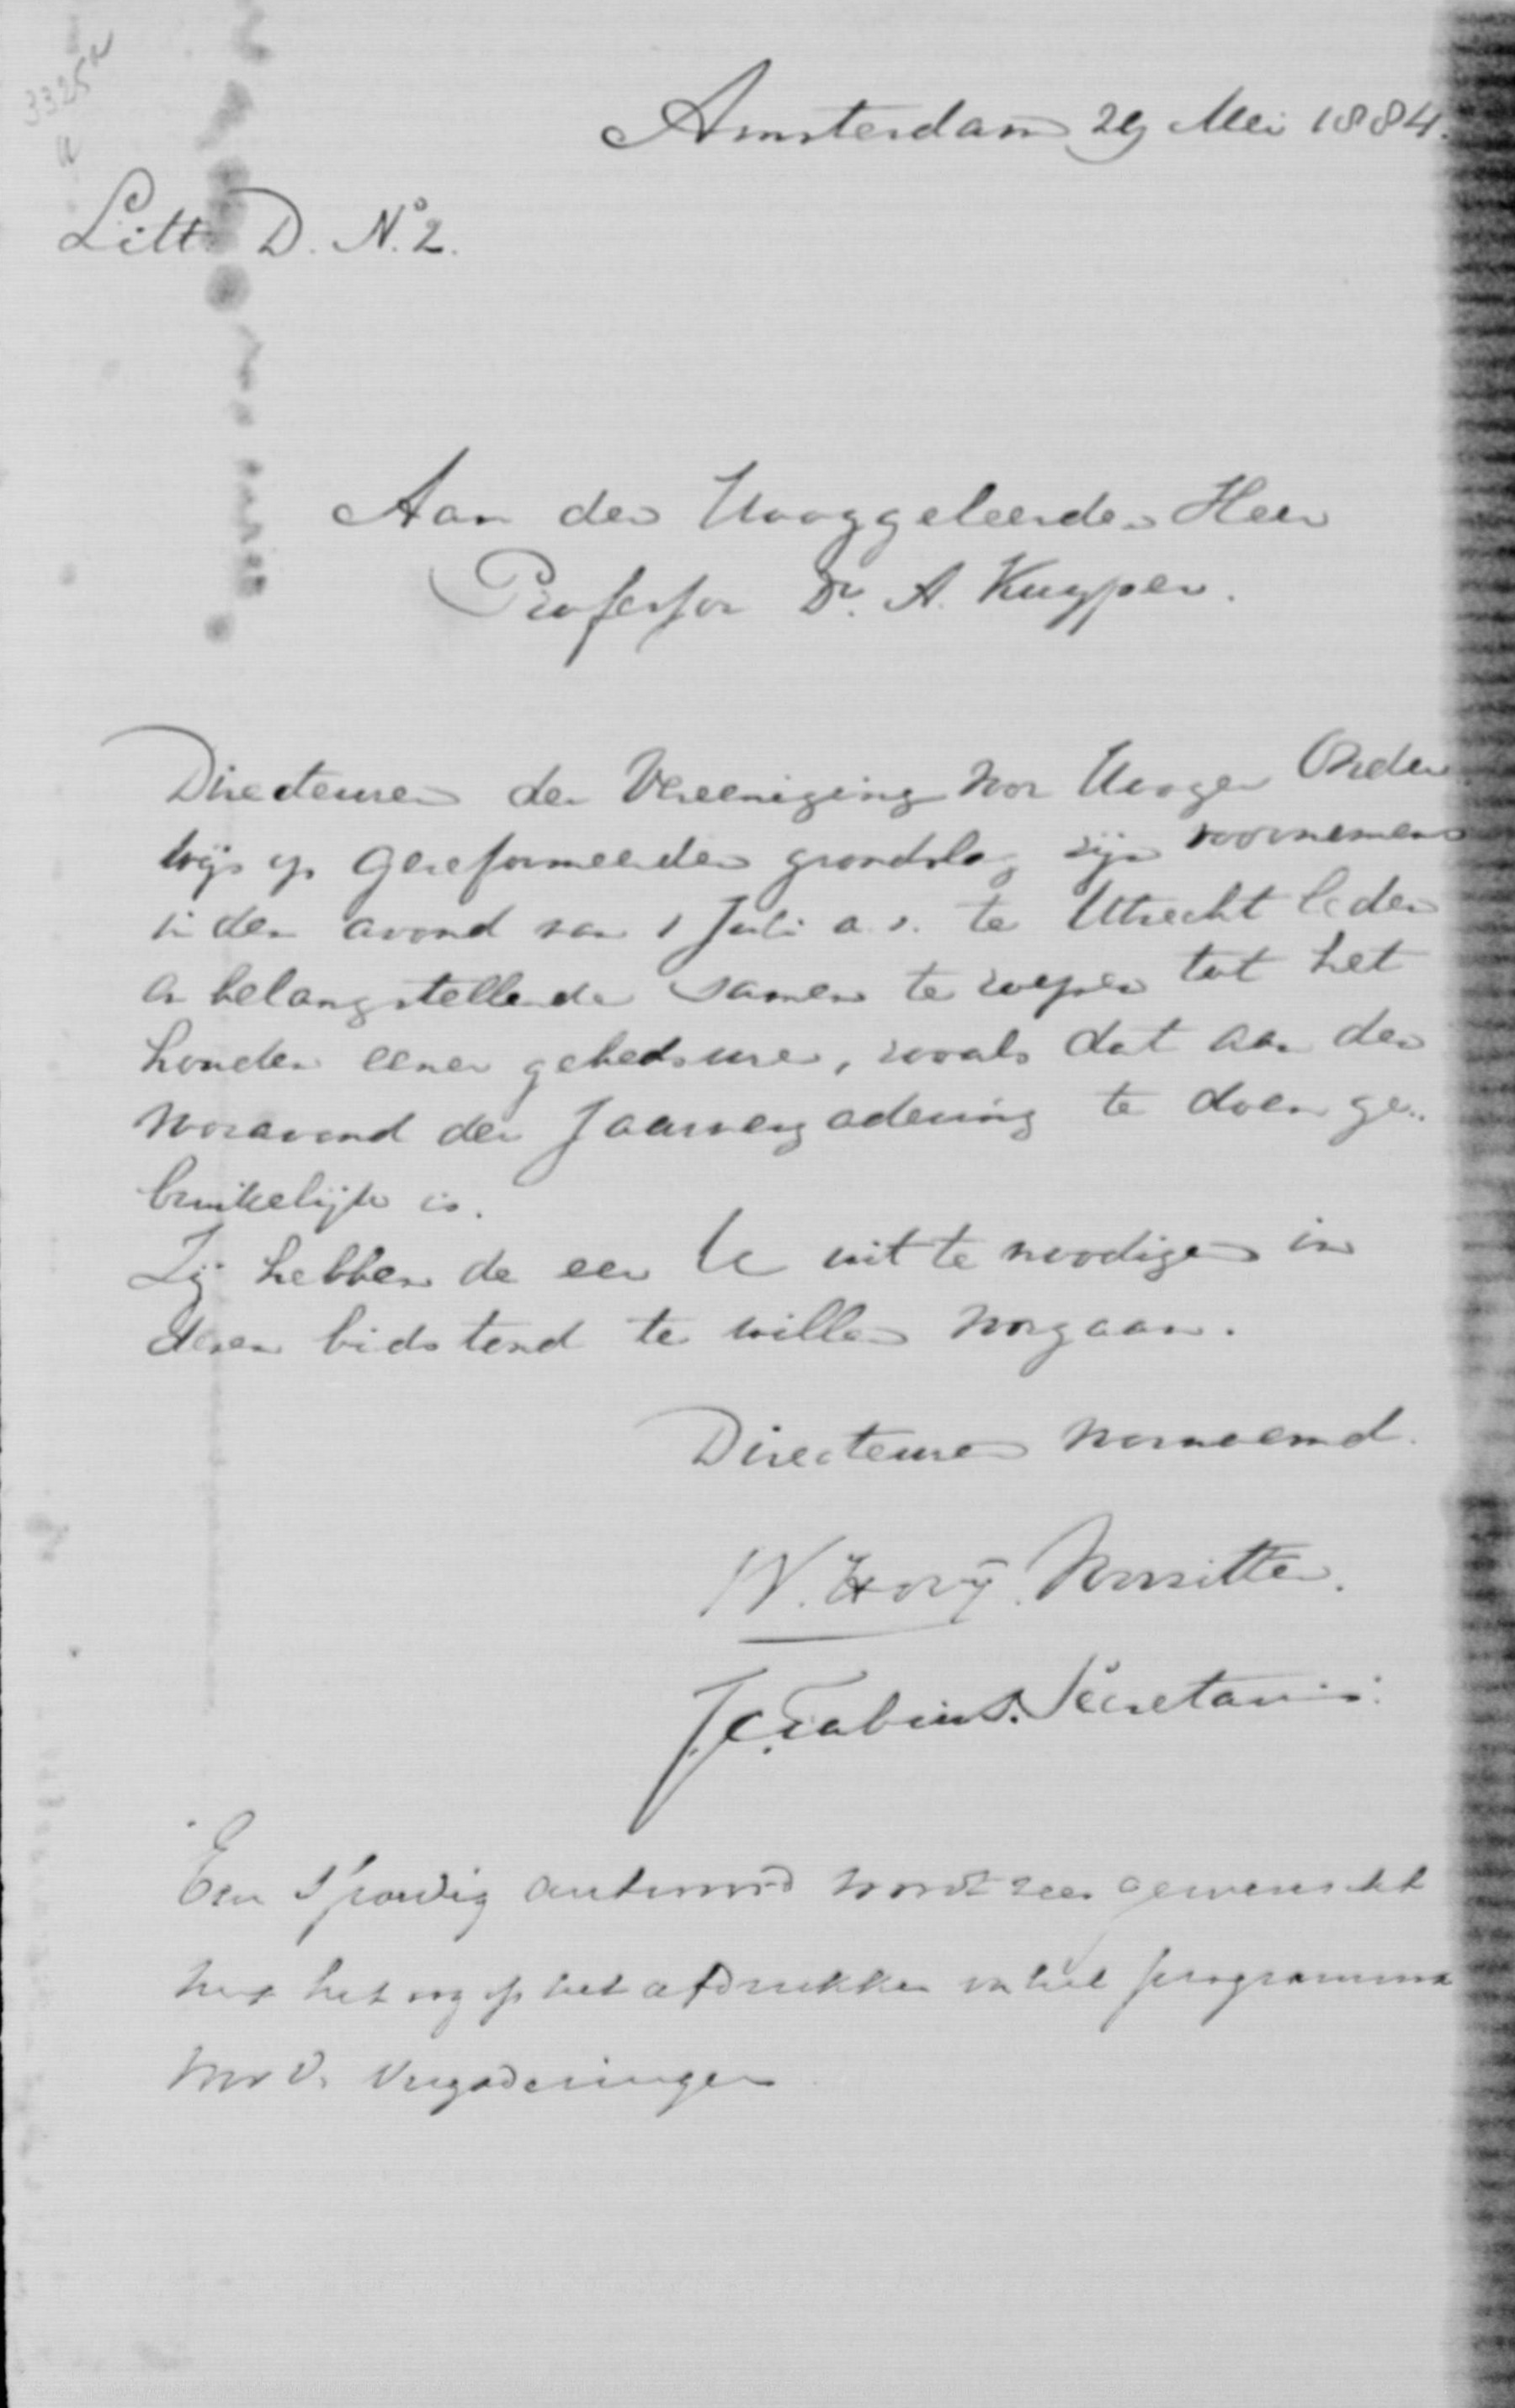 3325
Amsterdam 29 Mei 1884.
Litt. D. No. 2.
Aan den Hooggeleerden Heer
Professor Dr. A. Kuyper.
Directeuren der Vereeniging voor Hooger Onder
wijs op Gereformeerden grondslag zijn voornemens
in den avond van 1 Juli a. s. te Utrecht leden
en belangstellende samen te roepen tot het
houden eener gebedsure, zooals dat aan den
vooravond der Jaarvergadering te doen ge..
bruikelijk is.
Zij hebben de eer U uit te noodigen in
dezen bidstond te willen voorgaan.
Directeuren voornoemd.
W. Hovÿ. Voorzitter.
J. C. Fabius. Secretaris.
Een spoedig antwoord wordt zeer gewenscht
met het oog op het afdrukken van het programma
voor de Vergaderingen